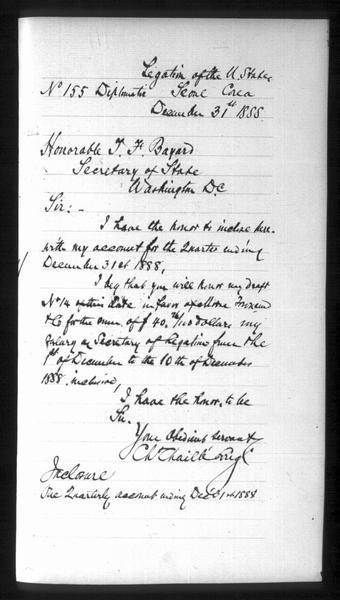 Legation of the U. States
No 155 Diplomatic Seoul Corea
December 31st 1888.
Honorable T. F. Bayard
Secretary of State
Washington D.C
Sir: -
I have the honor to inclose here-
with my account for the Quarter ending
December 31st 1888,
I beg that you will honor my draft
No 14 of this date in favor of Morse
& Co for the sum of $ 40. /100 dollars my
Salary as Secretary of Legation from the
1st of December to the 10th of December
1888. inclusive,
I have the honor, to be
Sir,
Your Obedient servant
Inclosure
The Quarterly account ending Dec 31st 1888